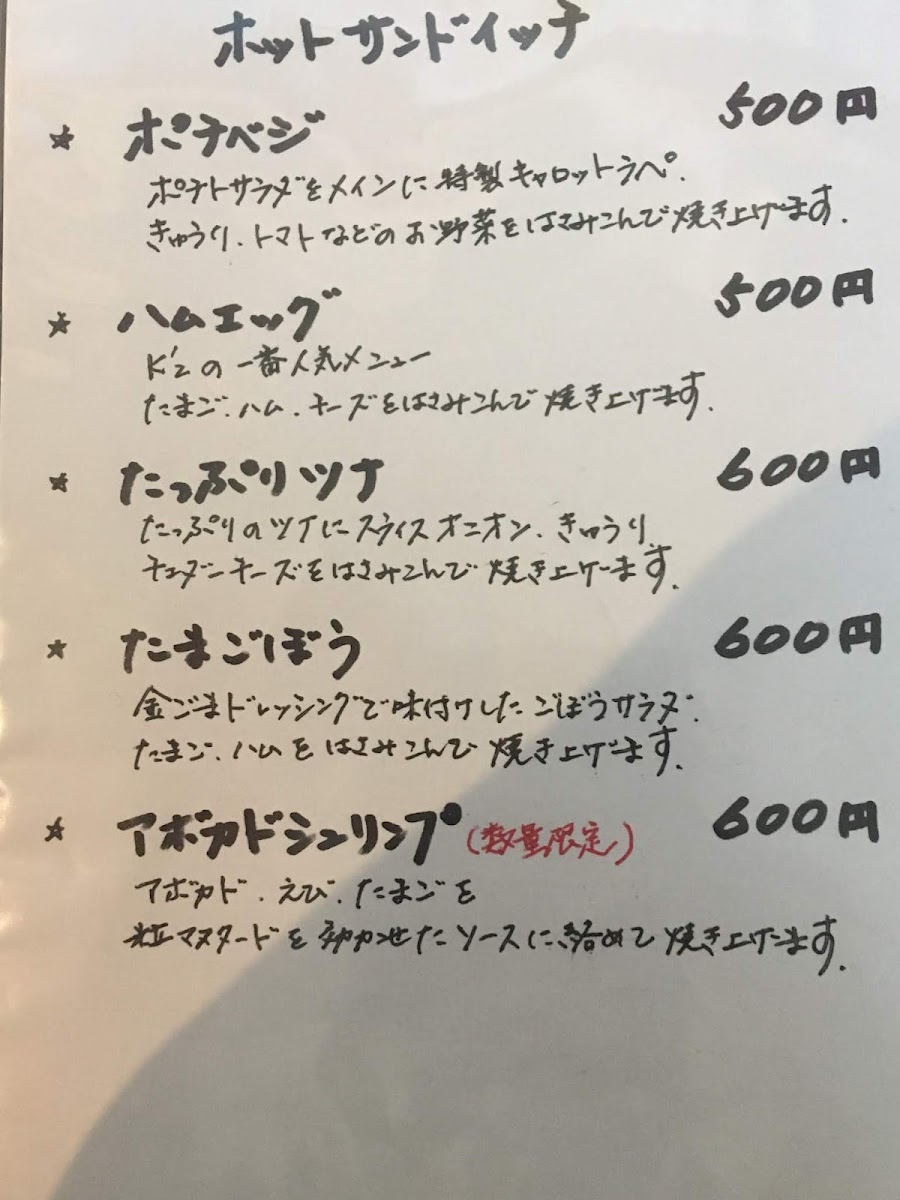 ホットサンドイッチ
☆ ポテベジ 500円
ポテトサラダをメインに特製キャロットラペ、
きゅうり、トマトなどのお野菜をはさみこんで焼き上げます。
☆ ハムエッグ 500円
K'zの一番人気メニュー
たまご、ハム、チーズをはさみこんで焼き上げます。
☆ たっぷりツナ 600円
たっぷりのツナにスライスオニオン、きゅうり、
チェダーチーズをはさみこんで焼き上げます。
☆ たまごぼう 600円
金ごまドレッシングで味付けしたごぼうサラダ、
たまご、ハムをはさみこんで焼き上げます。
☆ アボカドシュリンプ (数量限定) 600円
アボカド、えび、たまごを
粒マスタードを効かせたソースに絡めて焼き上げます。